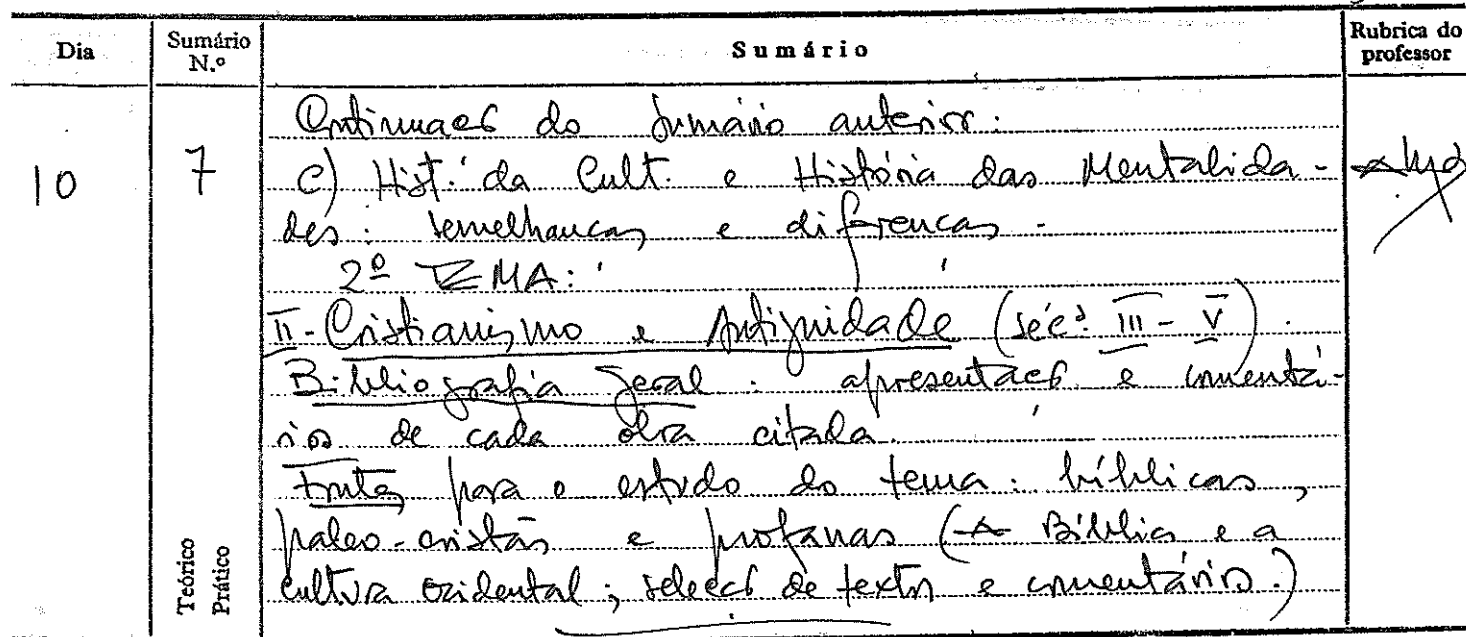 Dia Sumário N.º Sumário Rubrica do professor
Continuação do sumário anterior:
10 7 c) Hist. da Cult. e História das Mentalida-
des: semelhanças e diferenças.
2º TEMA:
II - Cristianismo e Antiguidade (séc.s III - V).
Bibliografia geral: apresentação e comentá-
rios de cada obra citada.
Fontes para o estudo do tema: bíblicas,
paleo-cristãs e profanas (A Bíblia e a
cultura ocidental; selecção de textos e comentários.)
Teórico
Prático